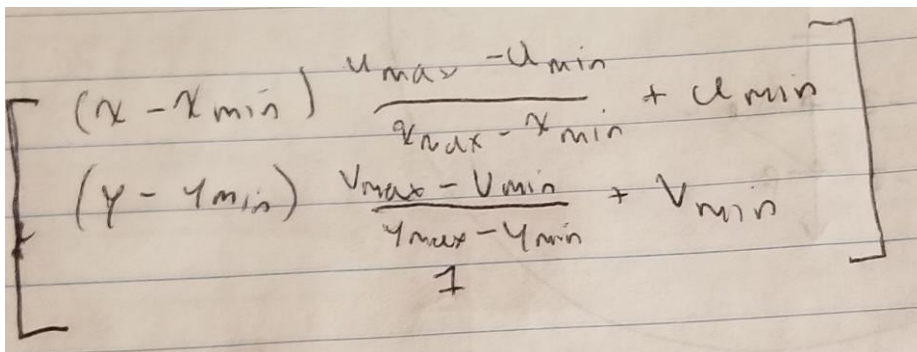 (x - x_min) (u_max - u_min)/(x_max - x_min) + u_min
(y - y_min) (v_max - v_min)/(y_max - y_min) + v_min
1